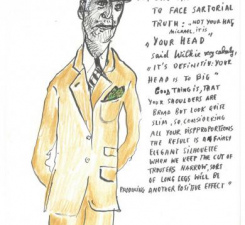 TO FACE SARTORIAL
TRUTH: "NOT YOUR HAT
MICHAEL, IT IS
"YOUR HEAD"
said Wilkie very soberly,
"IT'S DEFINITELY: YOUR
HEAD IS TO BIG"
Good THING IS, THAT
YOUR SHOULDERS ARE
BROAD BUT LOOK QUITE
SLIM, SO, CONSIDERING
ALL YOUR DISPROPORTIONS
THE RESULT IS
ELEGANT SILHOUETTE
WHEN WE KEEP THE CUT OF
TROUSERS NARROW, SORT
OF LONG LEGS WILL BE
ANOTHER POSITIVE EFFECT"